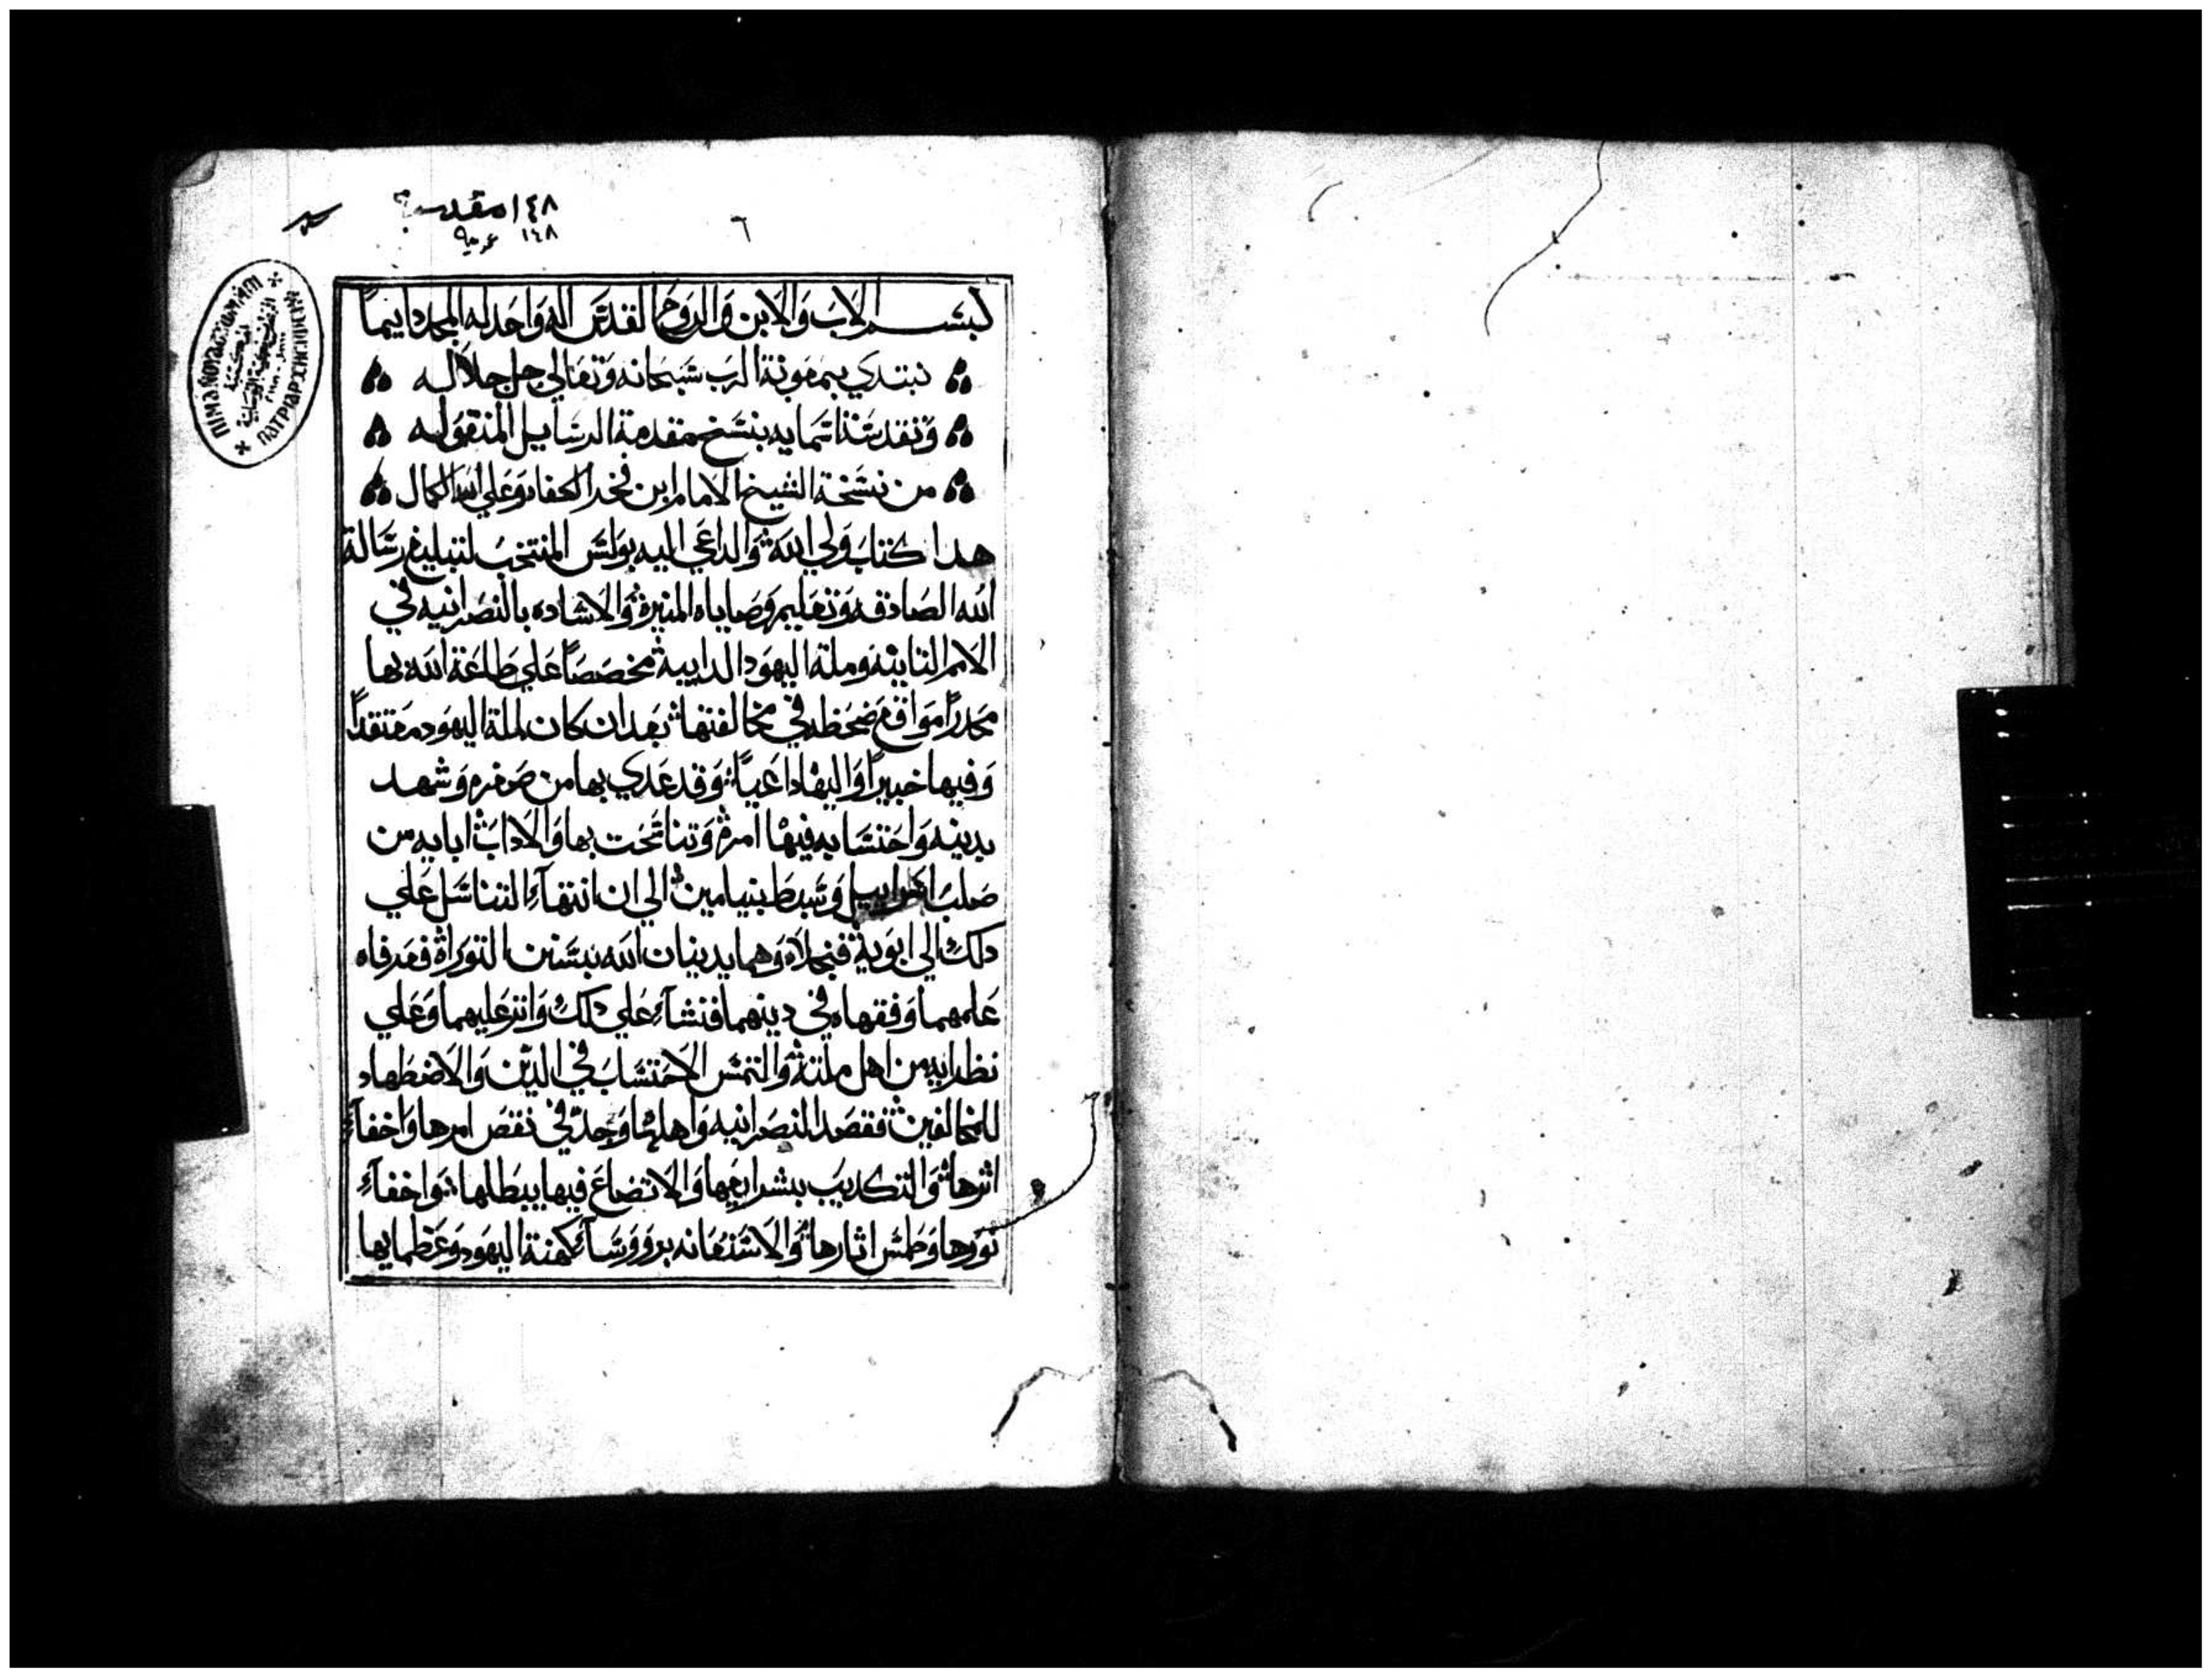 ١٤٨ مقدسة
١٤٨ عربية
٦
بسم الاب والابن والروح القدس اله واحد له المجد دايماً
نبتدي بمعونة الرب سبحانه وتعالي جل جلاله
وتقدست اسمايه بنسخ مقدمة الرسايل المنقوله
من نسخة الشيخ الامام ابن فخر الكفاه وعلي الله الكمال
هدا كتاب ولي الله والداعي اليه بولس المنتخب لتبليغ رسالة
الله الصادقه وتعاليم وصاياه المنيرة والاشاده بالنصرانيه في
الامم النايئه وملة اليهود الدانيية مخصصاً علي طاعة الله بها
محدراً مواقع ضحظه في مخالفتها بعد ان كان لملة اليهود معتقداً
وفيها خبيراً واليها داعياً وقد غدي بها من صغره وشهد
بدينه واحتسابه فيها امره وتناتحت بها والاداب ابايه من
صلب اسراييل وسبط بنيامين الي ان انتهآء التناسل علي
دلك الي ابويه فنجلاه وهما يدينان الله بسنن التوراة فعرفاه
علمهما وفقهاه في دينهما فنشآء علي دلك وانزعليهما وعلي
نظرايه من اهل ملته والتمس الاحتساب في الدين والاضطهاد
للمخالفين فقصد النصرانيه واهلها وجد في نقص امرها واخفآء
اثرها والتكديب بشرايعها والاتضاع فيها يبطلها واخفآء
نورها وطمس اثارها والاستعانه برووسآء كهنة اليهود وعظمايها